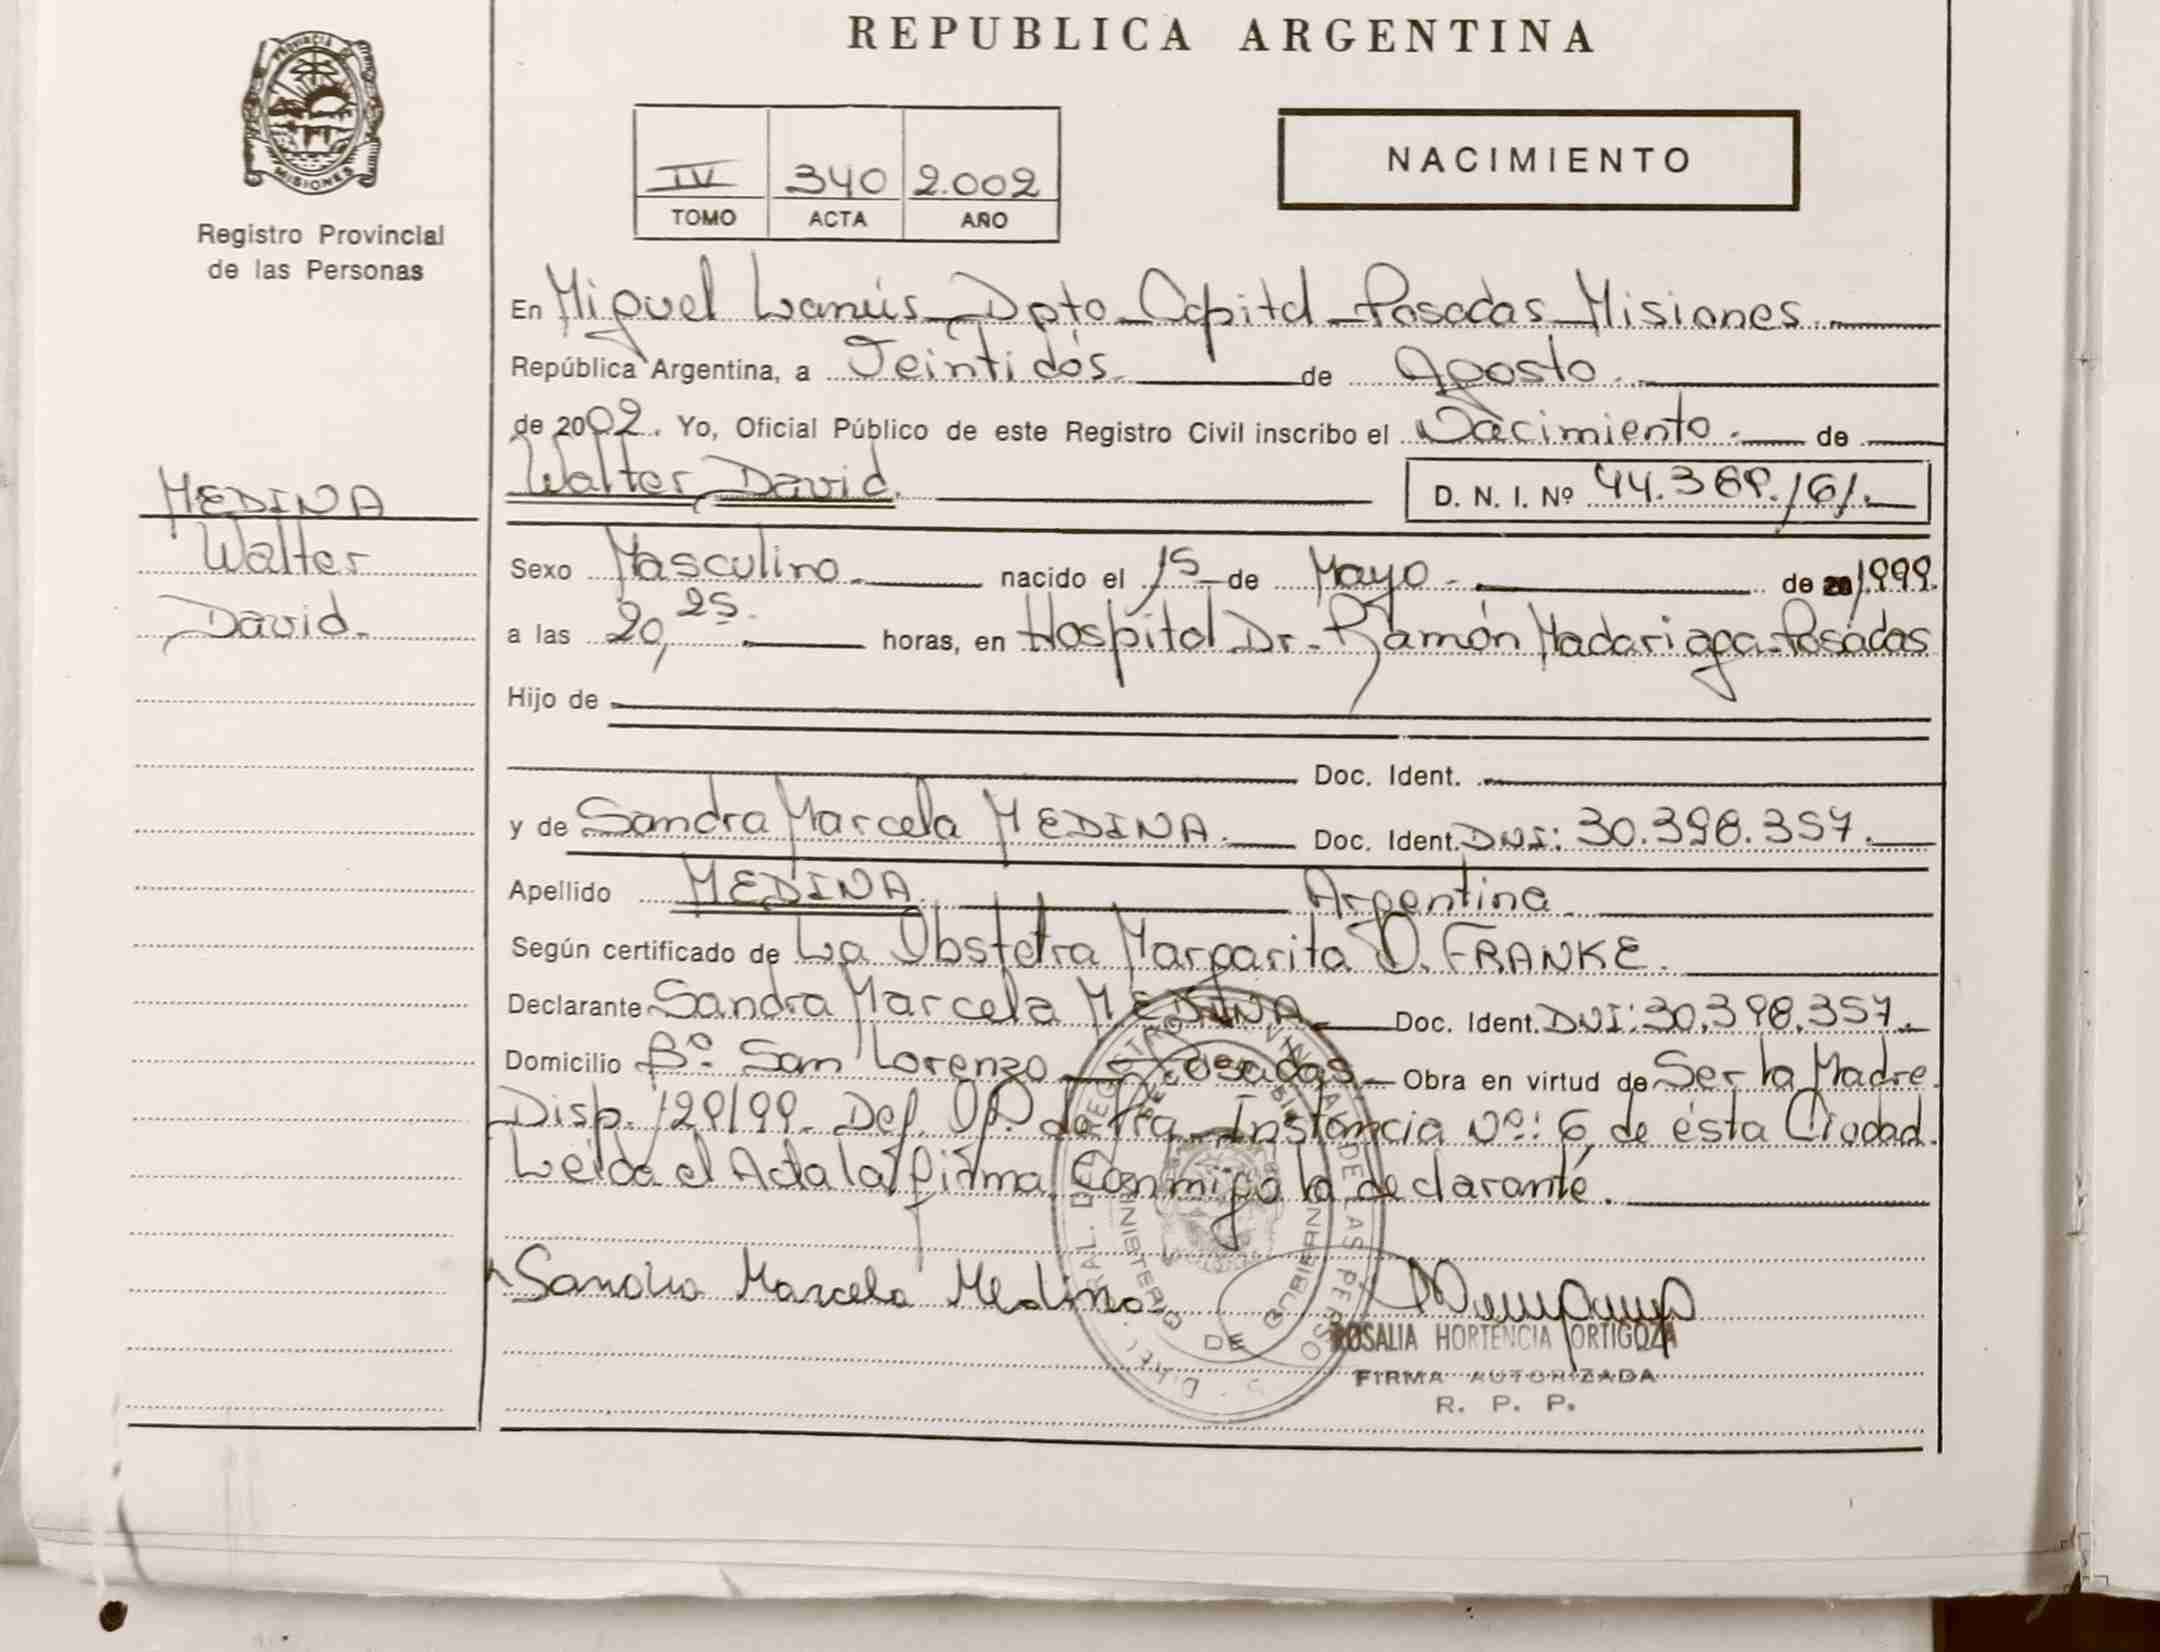 REPUBLICA ARGENTINA
PROVINCIA DE
MISIONES
Registro Provincial
de las Personas
IV 340 2.002
TOMO ACTA AÑO
NACIMIENTO
En Miguel Lanús Dpto Capital Posadas Misiones
República Argentina, a Veintidós de Agosto
de 2002. Yo, Oficial Público de este Registro Civil inscribo el Nacimiento de
Walter David. D. N. I. Nº
MEDINA
Walter
David.
Sexo Masculino. nacido el 15 de Mayo de 1999.
a las 20,25. horas, en Hospital Dr. Ramón Madariaga Posadas
Hijo de
Doc. Ident.
y de Sandra Marcela MEDINA. Doc. Ident. DNI: 30.398.357.
Apellido MEDINA Argentina
Según certificado de La Obstetra Margarita O. FRANKE.
Declarante Sandra Marcela MEDINA Doc. Ident. DNI: 30.398.357.
Domicilio Bº San Lorenzo Posadas Obra en virtud de Ser la Madre.
Disp. 129/99. Def. Of. de 1ra Instancia Nº: 6 de ésta Ciudad.
Leída el Acta la firma Conmigo la declarante.
Sandra Marcela Medina
ROSALIA HORTENCIA ORTIGOZA
FIRMA AUTORIZADA
R. P. P.
MINISTERIO DE GOBIERNO